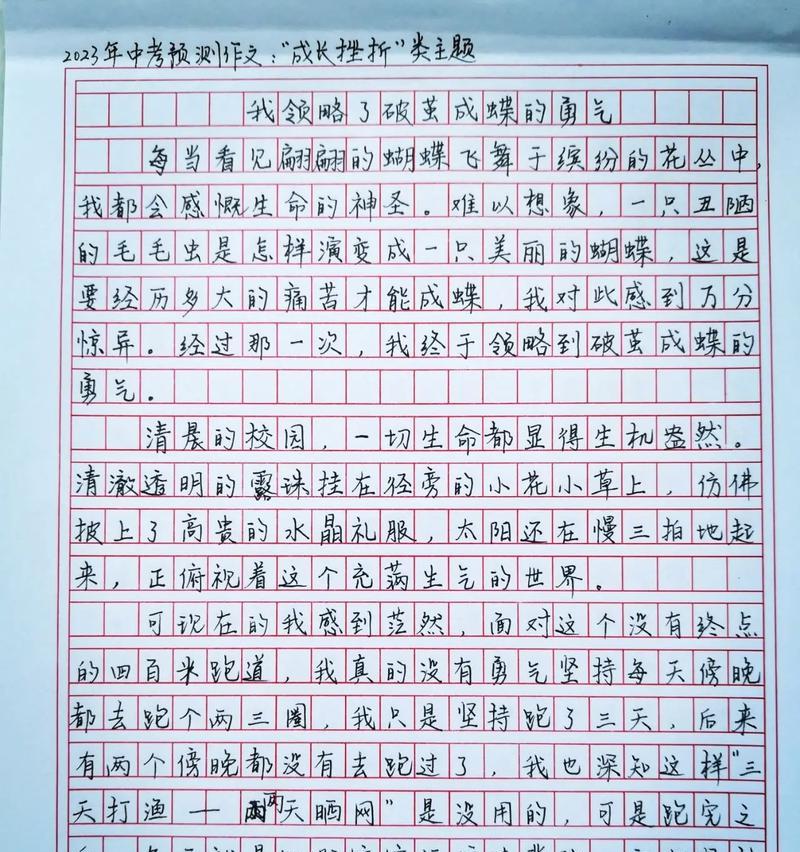 2023年中考预测作文："成长挫折"类主题
我领略了破茧成蝶的勇气
每当看见翩翩的蝴蝶飞舞于缤纷的花丛中，
我都会感慨生命的神圣。难以想象，一只丑陋
的毛毛虫是怎样演变成一只美丽的蝴蝶，这是
要经历多大的痛苦才能成蝶，我对此感到万分
惊异。经过那一次，我终于领略到破茧成蝶的
勇气。
清晨的校园，一切生命都显得生机盎然。
清澈透明的露珠挂在径旁的小花小草上，仿佛
披上了高贵的水晶礼服，太阳还在慢三拍地起
来，正俯视着这个充满生气的世界。
可现在的我感到茫然，面对这个没有终点
的四百米跑道，我真的没有勇气坚持每天傍晚
都去跑个两三圈，我只是坚持跑了三天，后来
有两个傍晚都没有去跑过了，我也深知这样"三
天打渔——两天晒网"是没用的，可是跑完之